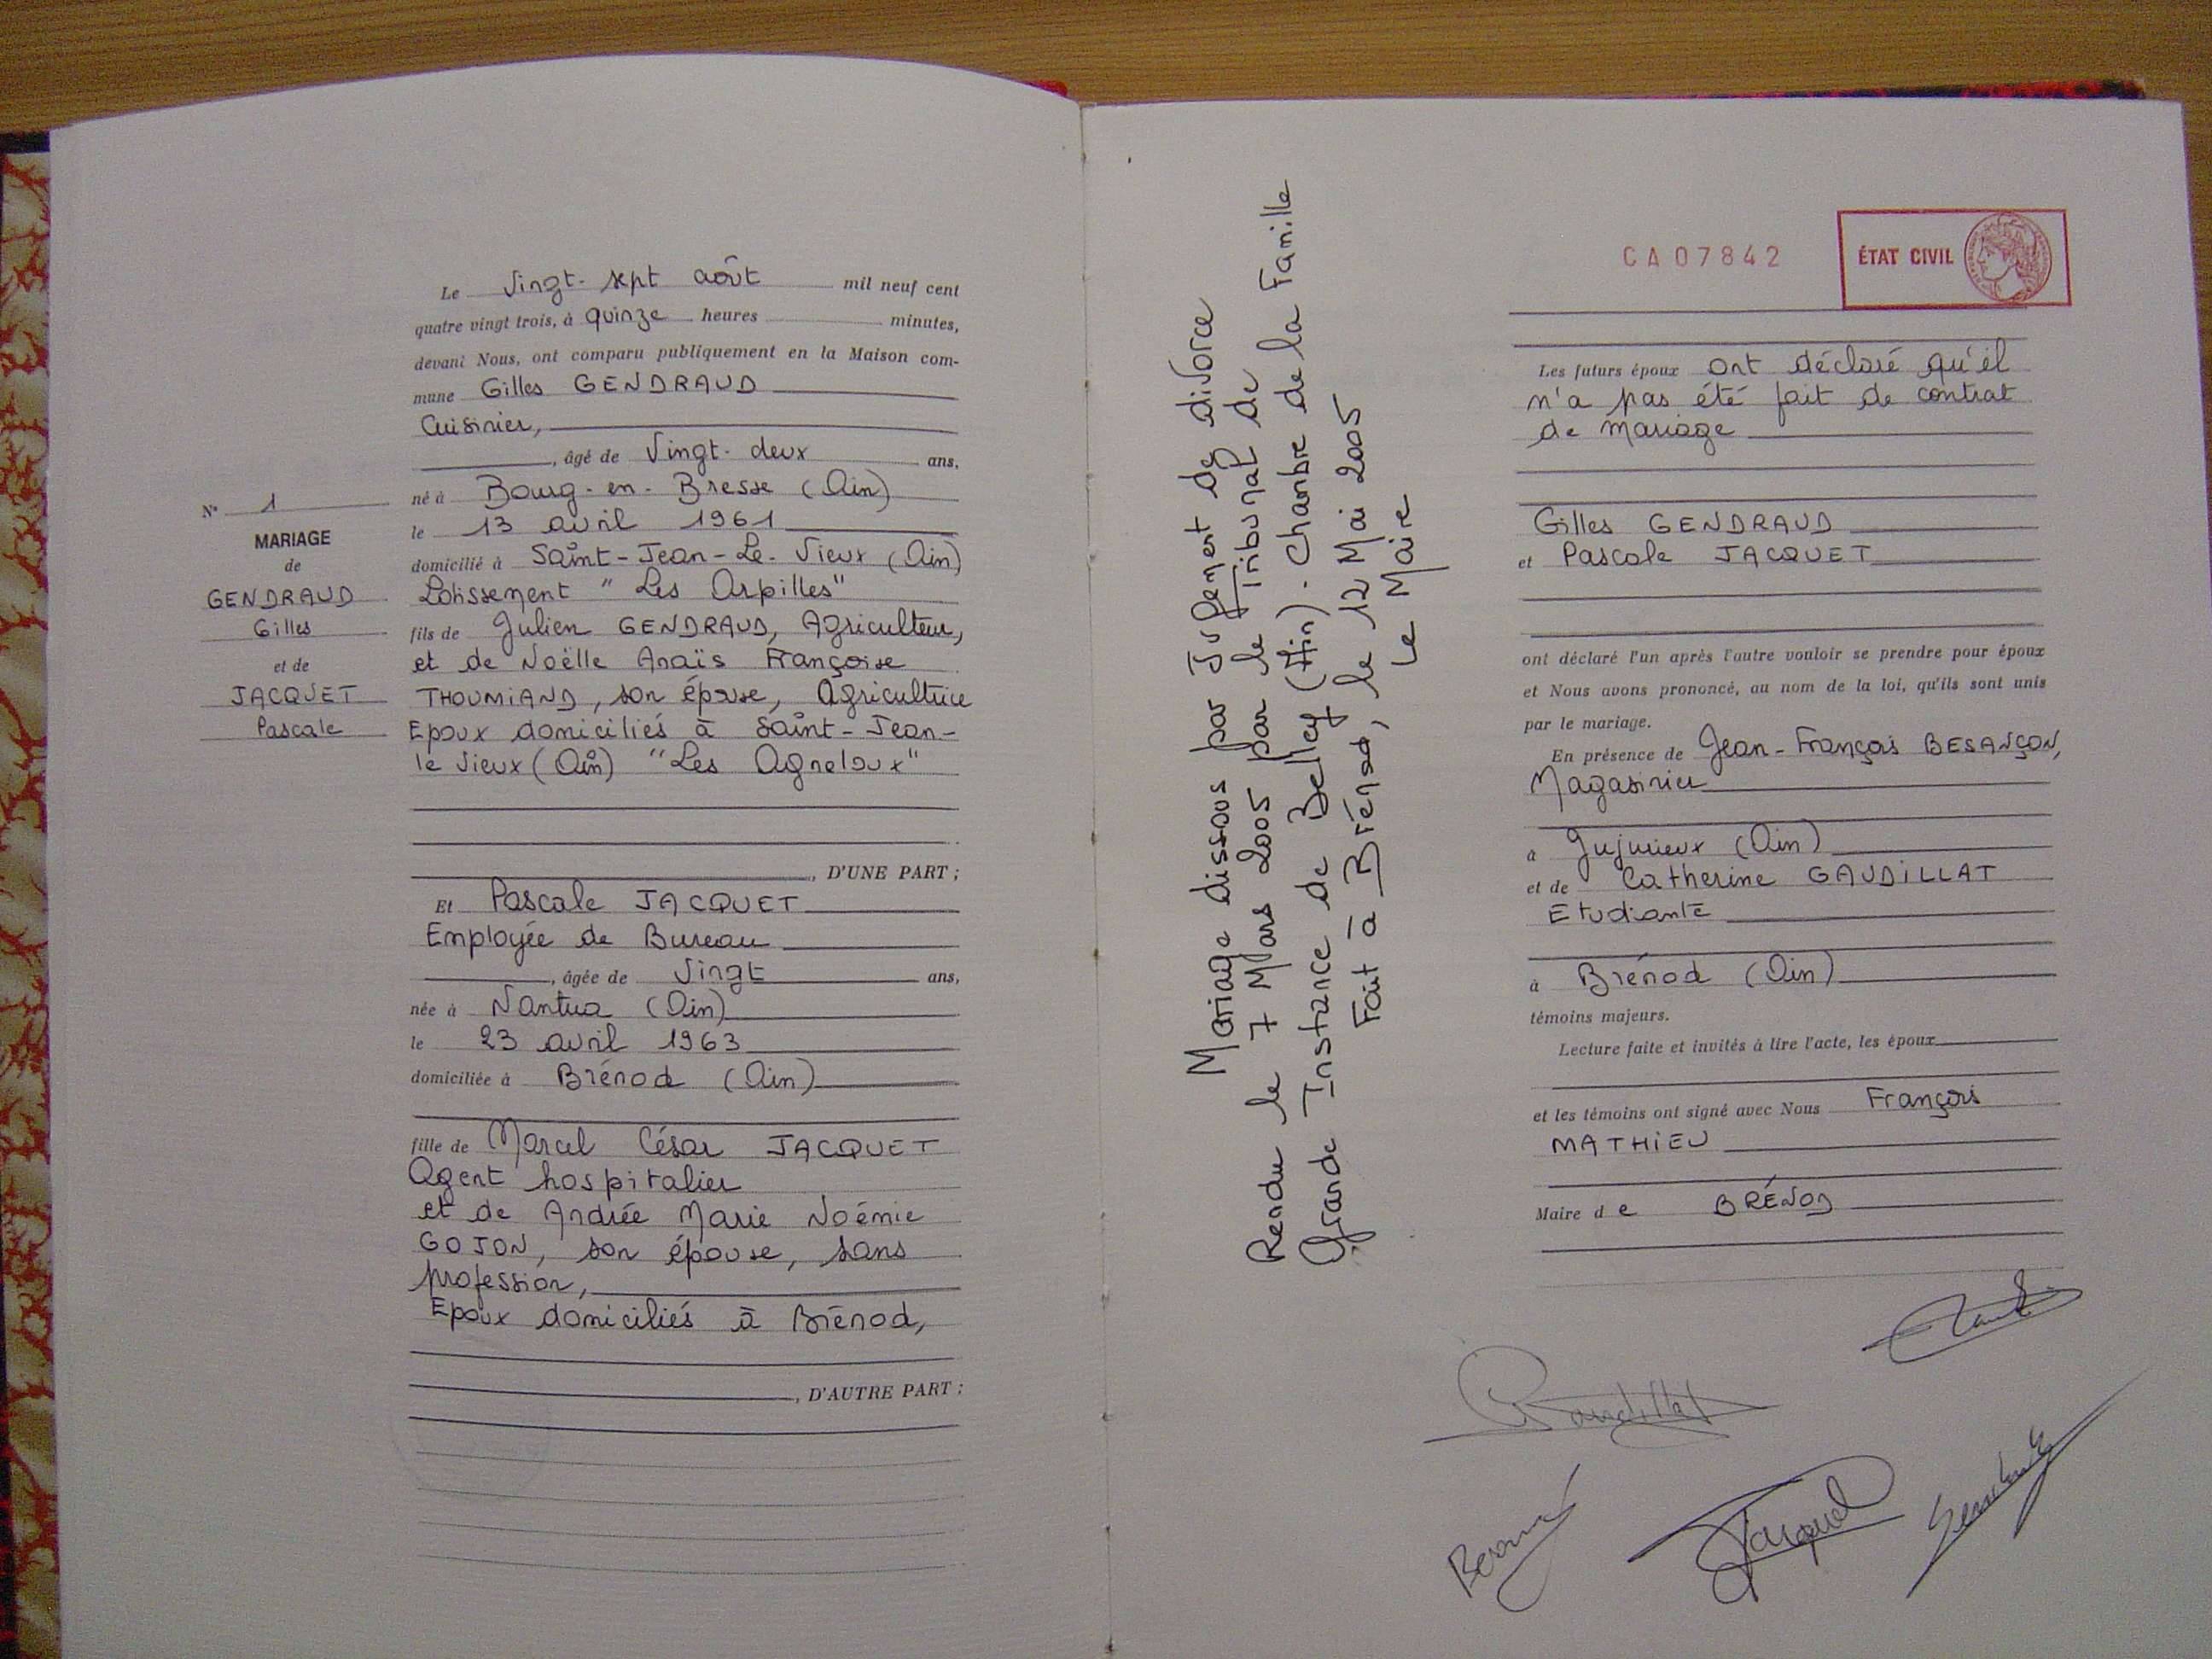 N° 1
MARIAGE
de
GENDRAUD
Gilles
et de
JACQUET
Pascale
Le Vingt-sept août mil neuf cent
quatre vingt trois, à quinze heures minutes,
devant Nous, ont comparu publiquement en la Maison com-
mune Gilles GENDRAUD
Cuisinier,
, âgé de Vingt-deux ans,
né à Bourg-en-Bresse (Ain)
le 13 avril 1961
domicilié à Saint-Jean-Le-Vieux (Ain)
Lotissement "Les Arpilles"
fils de Julien GENDRAUD, Agriculteur,
et de Noëlle Anaïs Françoise
THOUMIAND, son épouse, Agricultrice
Epoux domiciliés à Saint-Jean-
le Vieux (Ain) "Les Agneloux"
, D'UNE PART ;
Et Pascale JACQUET
Employée de Bureau
, âgée de Vingt ans,
née à Nantua (Ain)
le 23 avril 1963
domiciliée à Brénod (Ain)
fille de Marcel César JACQUET
Agent hospitalier
et de Andrée Marie Noémie
GOJON, son épouse, sans
profession,
Epoux domiciliés à Brénod,
, D'AUTRE PART ;
Mariage dissous par Jugement de divorce
Rendu le 7 Mars 2005 par le Tribunal de
Grande Instance de Belley (Ain). Chambre de la Famille
Fait à Brénod, le 12 Mai 2005
Le Maire
CA07842
ÉTAT CIVIL
Les futurs époux ont déclaré qu'il
n'a pas été fait de contrat
de mariage
Gilles GENDRAUD
et Pascale JACQUET
ont déclaré l'un après l'autre vouloir se prendre pour époux
et Nous avons prononcé, au nom de la loi, qu'ils sont unis
par le mariage.
En présence de Jean-François BESANÇON,
Magasinier
à Jujurieux (Ain)
et de Catherine GAUDILLAT
Etudiante
à Brénod (Ain)
témoins majeurs.
Lecture faite et invités à lire l'acte, les époux
et les témoins ont signé avec Nous François
MATHIEU
Maire de BRÉNOD
Gaudillat
Jacquet